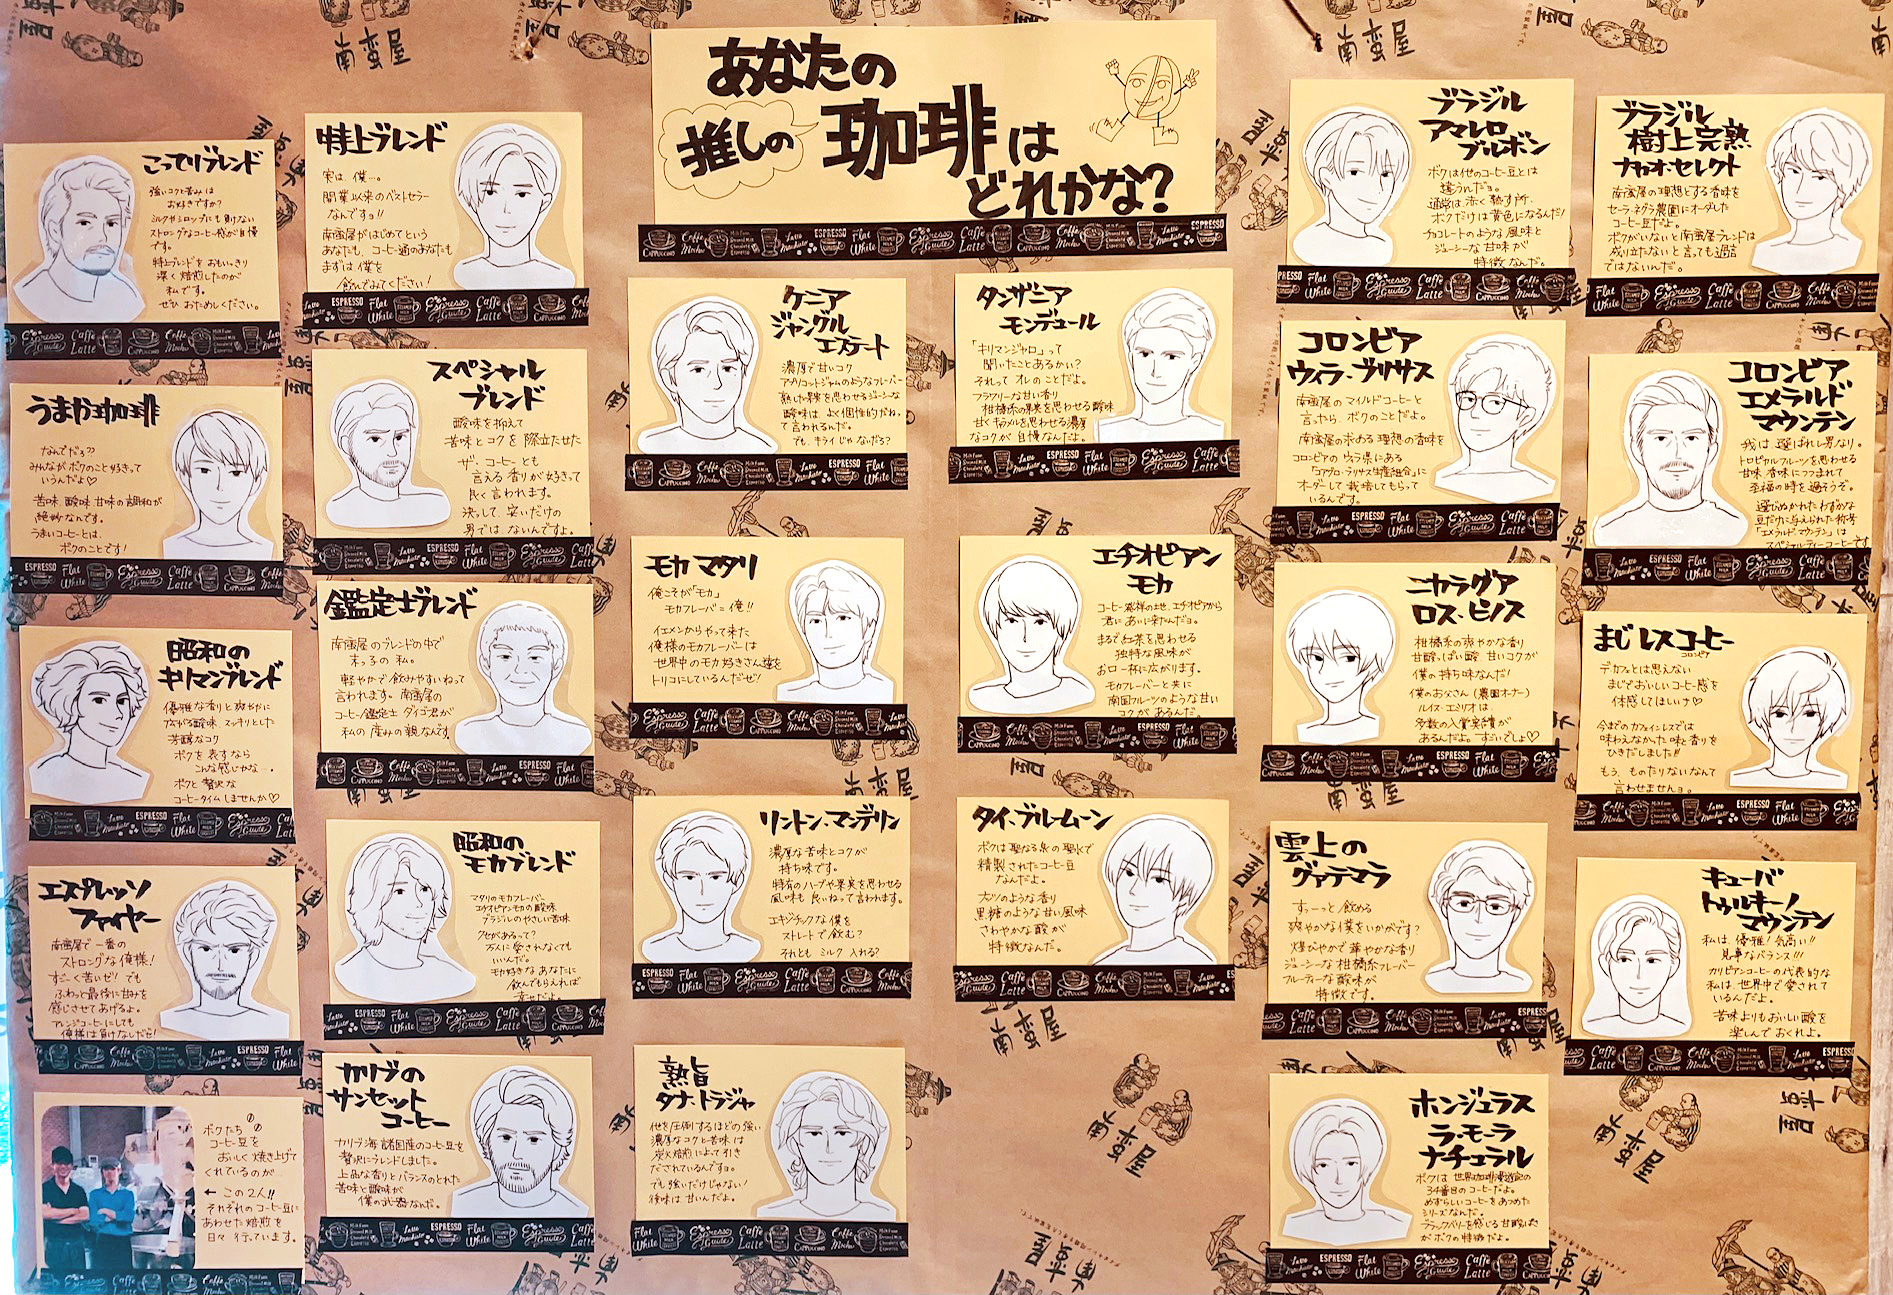 あなたの
推しの 珈琲は
どれかな?
こってりブレンド
強いコクと苦みは
お好きですか?
ミルクやシロップにも負けない
ストロングなコーヒー感が自慢
です。
特上ブレンドをおもいっきり
深く焙煎したのが
私です。
ぜひ おためしください。
うまか珈琲
なんでだろ??
みんながボクのこと好きって
いうんだよ♡
苦味、酸味、甘味の調和が
絶妙なんです。
うまいコーヒーとは、
ボクのことです!
昭和の
キリマンブレンド
優雅な香りと爽やかに
広がる酸味、スッキリとした
芳醇なコク
ボクを表すなら
こんな感じかな…。
ボクと贅沢な
コーヒータイムしませんか♡
エスプレッソ
ファイヤー
南蛮屋で一番の
ストロングな俺様!
すごーく苦いぜ!でも
ふわっと最後に甘みを
感じさせてあげるよ。
アレンジコーヒーにしても
俺様は負けなしだぜ!
ボクたち
コーヒー豆を
おいしく焼き上げて
くれているのが…
← この2人!!
それぞれのコーヒー豆に
あわせた焙煎を
日々 行っています。
特上ブレンド
実は、僕…。
開業以来のベストセラー
なんですョ!!
南蛮屋がはじめてという
あなたも、コーヒー通のあなたも
まずは僕を
飲んでみてください!
スペシャル
ブレンド
酸味を抑えて
苦味とコクを際立たせた
ザ・コーヒーとも
言える香りが好きって
良く言われます。
決っして、安いだけの
男ではないんですよ。
鑑定士ブレンド
南蛮屋のブレンドの中で
末っ子の私。
軽やかで飲みやすいねって
言われます。南蛮屋の
コーヒー鑑定士 ダイゴ君が
私の産みの親なんです
昭和の
モカブレンド
マタリのモカフレーバー
エチオピアンモカの酸味
ブラジルのやさしい苦味
クセがあるって?
万人に愛されなくても
いいんだ。
モカ好きなあなたに
飲んでもらえれば
幸せだよ。
カリブの
サンセット
コーヒー
カリブ海諸国産のコーヒー豆を
贅沢にブレンドしました。
上品な香りとバランスのとれた
苦味と酸味が
僕の武器なんだ。
ケニア
ジャングル
エステート
濃厚で甘いコク
アプリコットジャムのようなフレーバー
熟した果実を思わせるジューシーな
酸味は、よく個性的だね。
て言われるんだ。
でも、キライじゃないだろ?
モカ マタリ
俺こそが「モカ」
モカフレーバー=俺!!
イエメンからやって来た
俺様のモカフレーバーは
世界中のモカ好きさん達を
トリコにしているんだぜ!
リントン・マンデリン
濃厚な苦味とコクが
持ち味です。
特有のハーブや果実を思わせる
風味も良いねって言われます。
エキゾチックな僕を
ストレートで飲む?
それとも ミルク入れる?
熟旨
タナ・トラジャ
他を圧倒するほどの強い
濃厚なコクと苦味は
炭火焙煎によって引き
だされているんですョ。
でも強いだけじゃない!
後味は甘いんだよ。
タンザニア
モンデュール
「キリマンジャロ」って
聞いたことあるかい?
それって オレのことだよ。
フラワリーな甘い香り
柑橘系の果実を思わせる酸味
甘くキャラメルを思わせる濃厚
なコクが自慢なんだよ。
エチオピアン
モカ
コーヒー発祥の地、エチオピアから
君にあいに来たんだョ。
まるで紅茶を思わせる
独特な風味が
お口一杯に広がります。
モカフレーバーと共に
南国フルーツのような甘い
コクがあるんだ。
タイ・ブルームーン
ボクは聖なる泉の聖水で
精製されたコーヒー豆
なんだよ。
ナッツのような香り
黒糖のような甘い風味
さわやかな酸が
特徴なんだ。
ブラジル
アマレロ
ブルボン
ボクは他のコーヒー豆とは
違うんだョ。
通常は赤く熟す所、
ボクだけは黄色になるんだ!
チョコレートのような風味と
ジューシーな甘味が
特徴なんだ。
コロンビア
ウィラ・ブリサス
南蛮屋のマイルドコーヒーと
言ったら、ボクのことだよ。
南蛮屋の求める理想の香味を
コロンビアのウィラ県にある
「コアグロ・ブリサス生産組合」に
オーダーして栽培してもらって
いるんです。
ニカラグア
ロス・ピノス
柑橘系の爽やかな香り
甘酸っぱい酸、甘いコクが
僕の持ち味なんだ!
僕のお父さん(農園オーナー)
ルイス・エミリオは、
多数の入賞実績が
あるんだよ。すごいでしょ♡
雲上の
グァテマラ
すぅーっと飲める
爽やかな僕をいかがです?
煌びやかで華やかな香り
ジューシーな柑橘系フレーバー
フルーティーな酸味が
特徴です。
ホンジュラス
ラ・モーラ
ナチュラル
ボクは、世界珈琲漫遊記の
34番目のコーヒーだよ。
めずらしいコーヒーをあつめた
シリーズなんだ。
ブラックベリーを感じる甘酸っぱさ
がボクの特徴だよ。
ブラジル
樹上完熟
ナカオ・セレクト
南蛮屋の理想とする香味を
セーラ・ネグラ農園にオーダした
コーヒー豆だよ。
ボクがいないと南蛮屋ブレンドは
成り立たないと言っても過言
ではないんだ。
コロンビア
エメラルド
マウンテン
我は、選ばれし男なり。
トロピカルフルーツを思わせる
甘味、香味につつまれて
至福の時を過そうぞ。
選びぬかれたわずかな
豆だけに与えられた称号
「エメラルド・マウンテン」は
スペシャルティーコーヒーです
まじレスコーヒー
コロンビア
デカフェとは思えない
まじでおいしいコーヒー感を
体感してほしいナ♡
今までのカフェインレスでは
味わえなかった味と香りを
ひきだしました!!
もう、ものたりないなんて
言わせませんョ。
キューバ
トゥルキーノ
マウンテン
私は、優雅!気高い!!
見事なバランス!!!
カリビアンコーヒーの代表的な
私は、世界中で愛されて
いるんだよ。
苦味よりもおいしい酸を
楽しんでおくれよ。